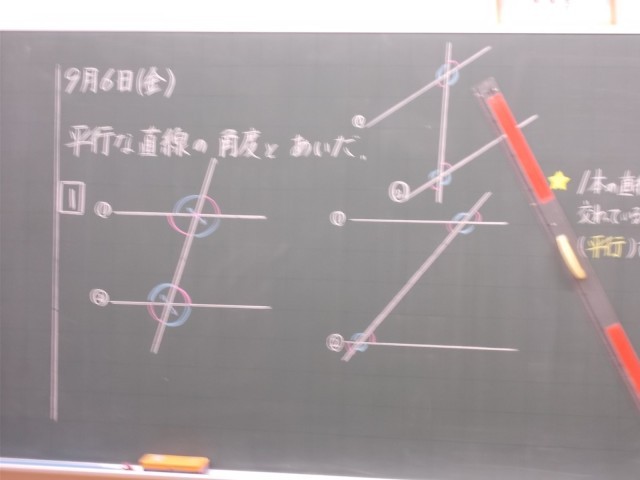 9月6日(金)
平行な直線の角度とあいだ、
1
①
②
①
②
①
②
1本の直
交れている
(平行)